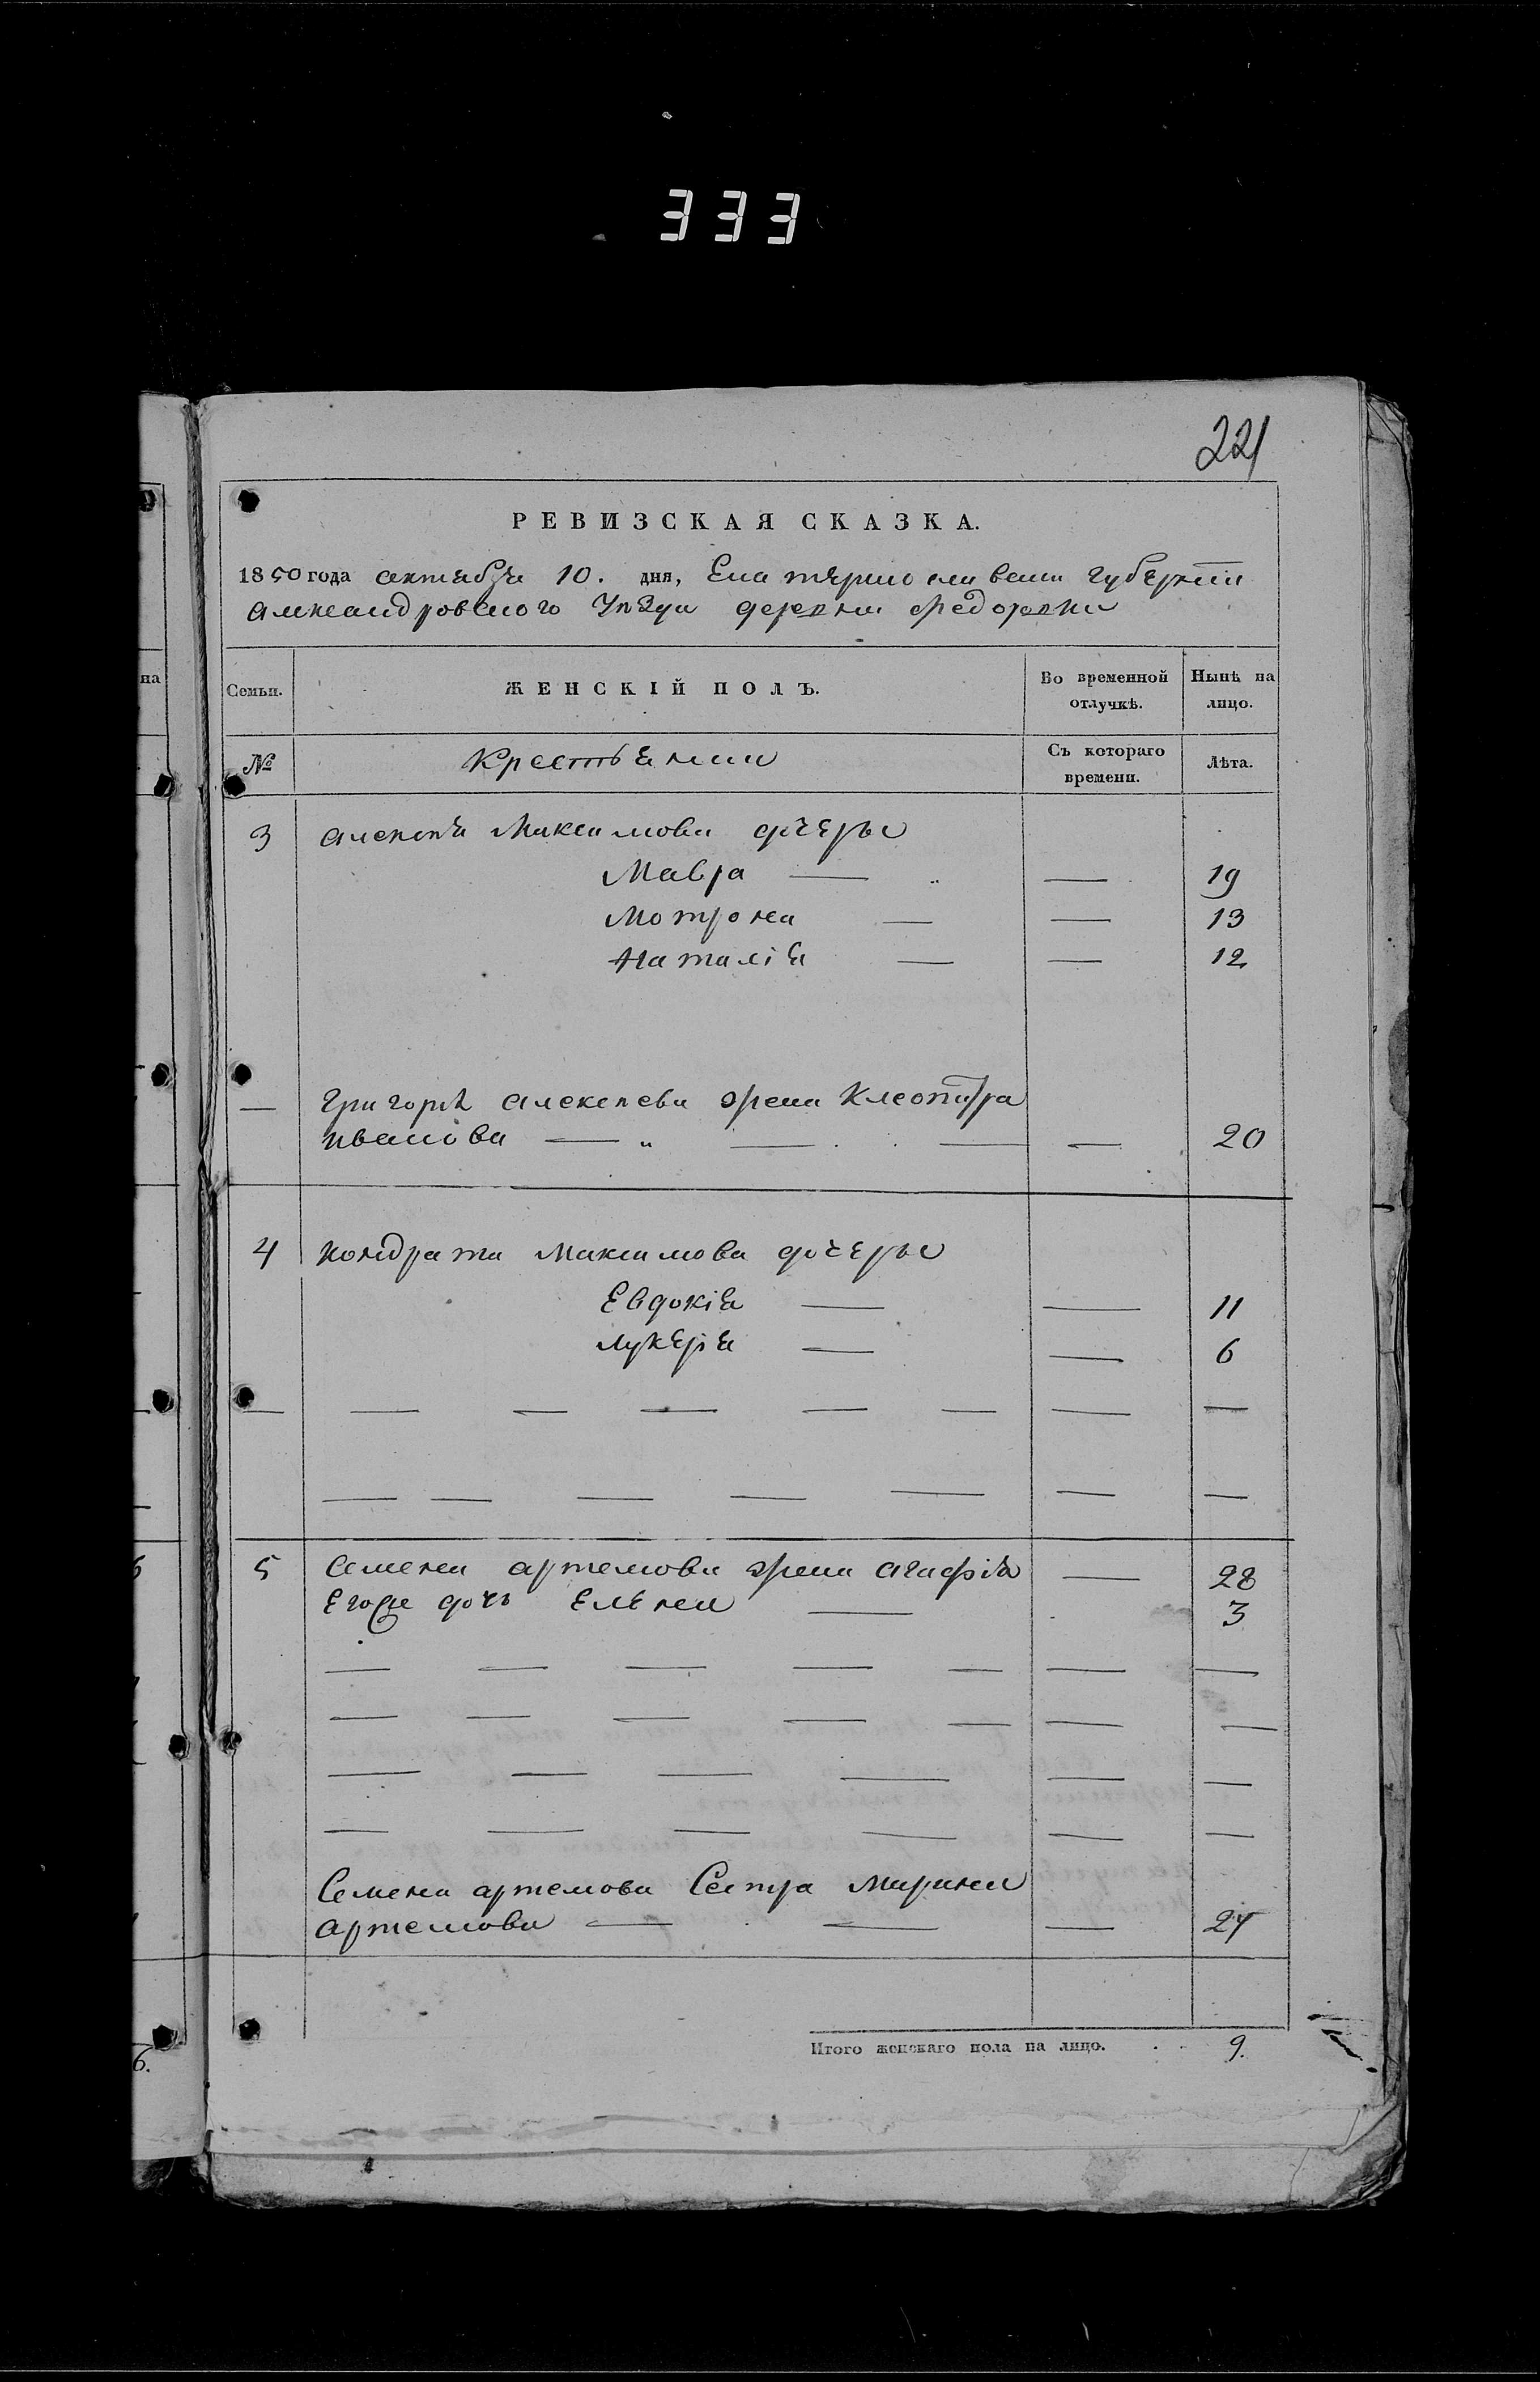 333
221
РЕВИЗСКАЯ СКАЗКА.
1850 года октября 10. дня, Екатеринославской губернии
Александровского Уезда деревни Федоровки
на
Семьи.
ЖЕНСКІЙ ПОЛЪ.
Во временной отлучкѣ.
Нынѣ на лицо.
№
Крестьянки
Съ котораго времени.
Лѣта.
3 Алексѣя Максимова дочеры
Мавра — — 19
Мотрона — — 13
Наталія — — 12
— Григорія Алексеева жена Клеопатра
Иванова — „ — — — 20
4 Кондрата Максимова дочеры
Евдокія — — 11
Лукерія — — 6
— — — — — — — —
— — — — — — —
5 Семена Артемова жена Агафія — 28
Егоже дочь Елена — 3
— — — — — — —
— — — — — — —
— — — — — —
— — — — — —
Семена Артемова Сестра Марина
Артемова — — — 24
Итого женскаго пола на лицо. . . 9.
6.